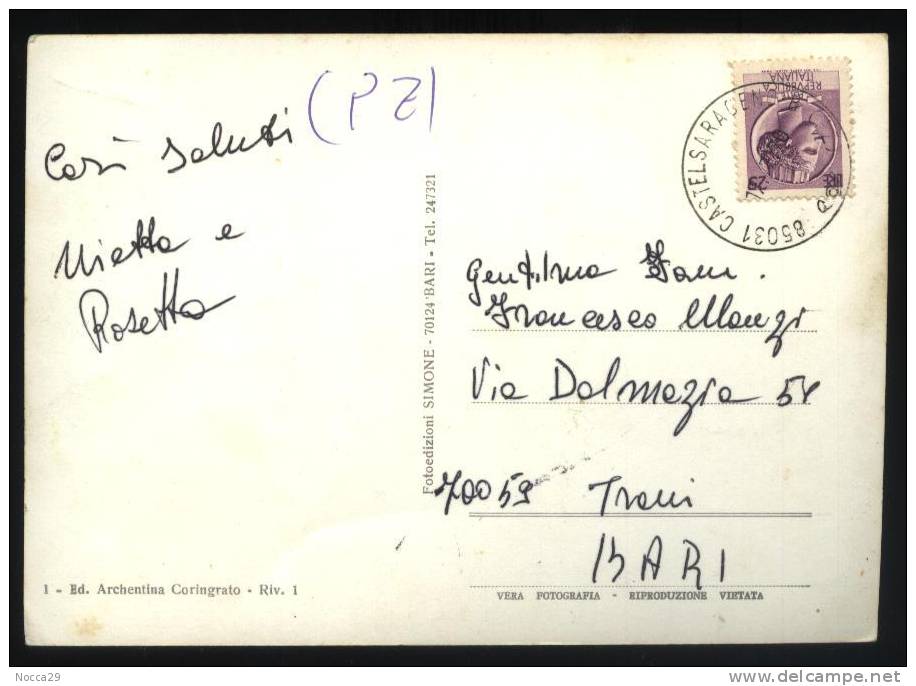 (PZ)
Cari saluti
Mietta e
Rosetta
1 - Ed. Archentina Coringrato - Riv. 1
Fotoedizioni SIMONE - 70124 BARI - Tel. 247321
REPVBBLICA
ITALIANA
LIRE
85031 CASTELSARACENO
Gent.ma Fam.
Francesco Manzi
Via Dalmazia 54
70059 Trani
BARI
VERA FOTOGRAFIA - RIPRODUZIONE VIETATA
Nocca29
www.delcampe.net